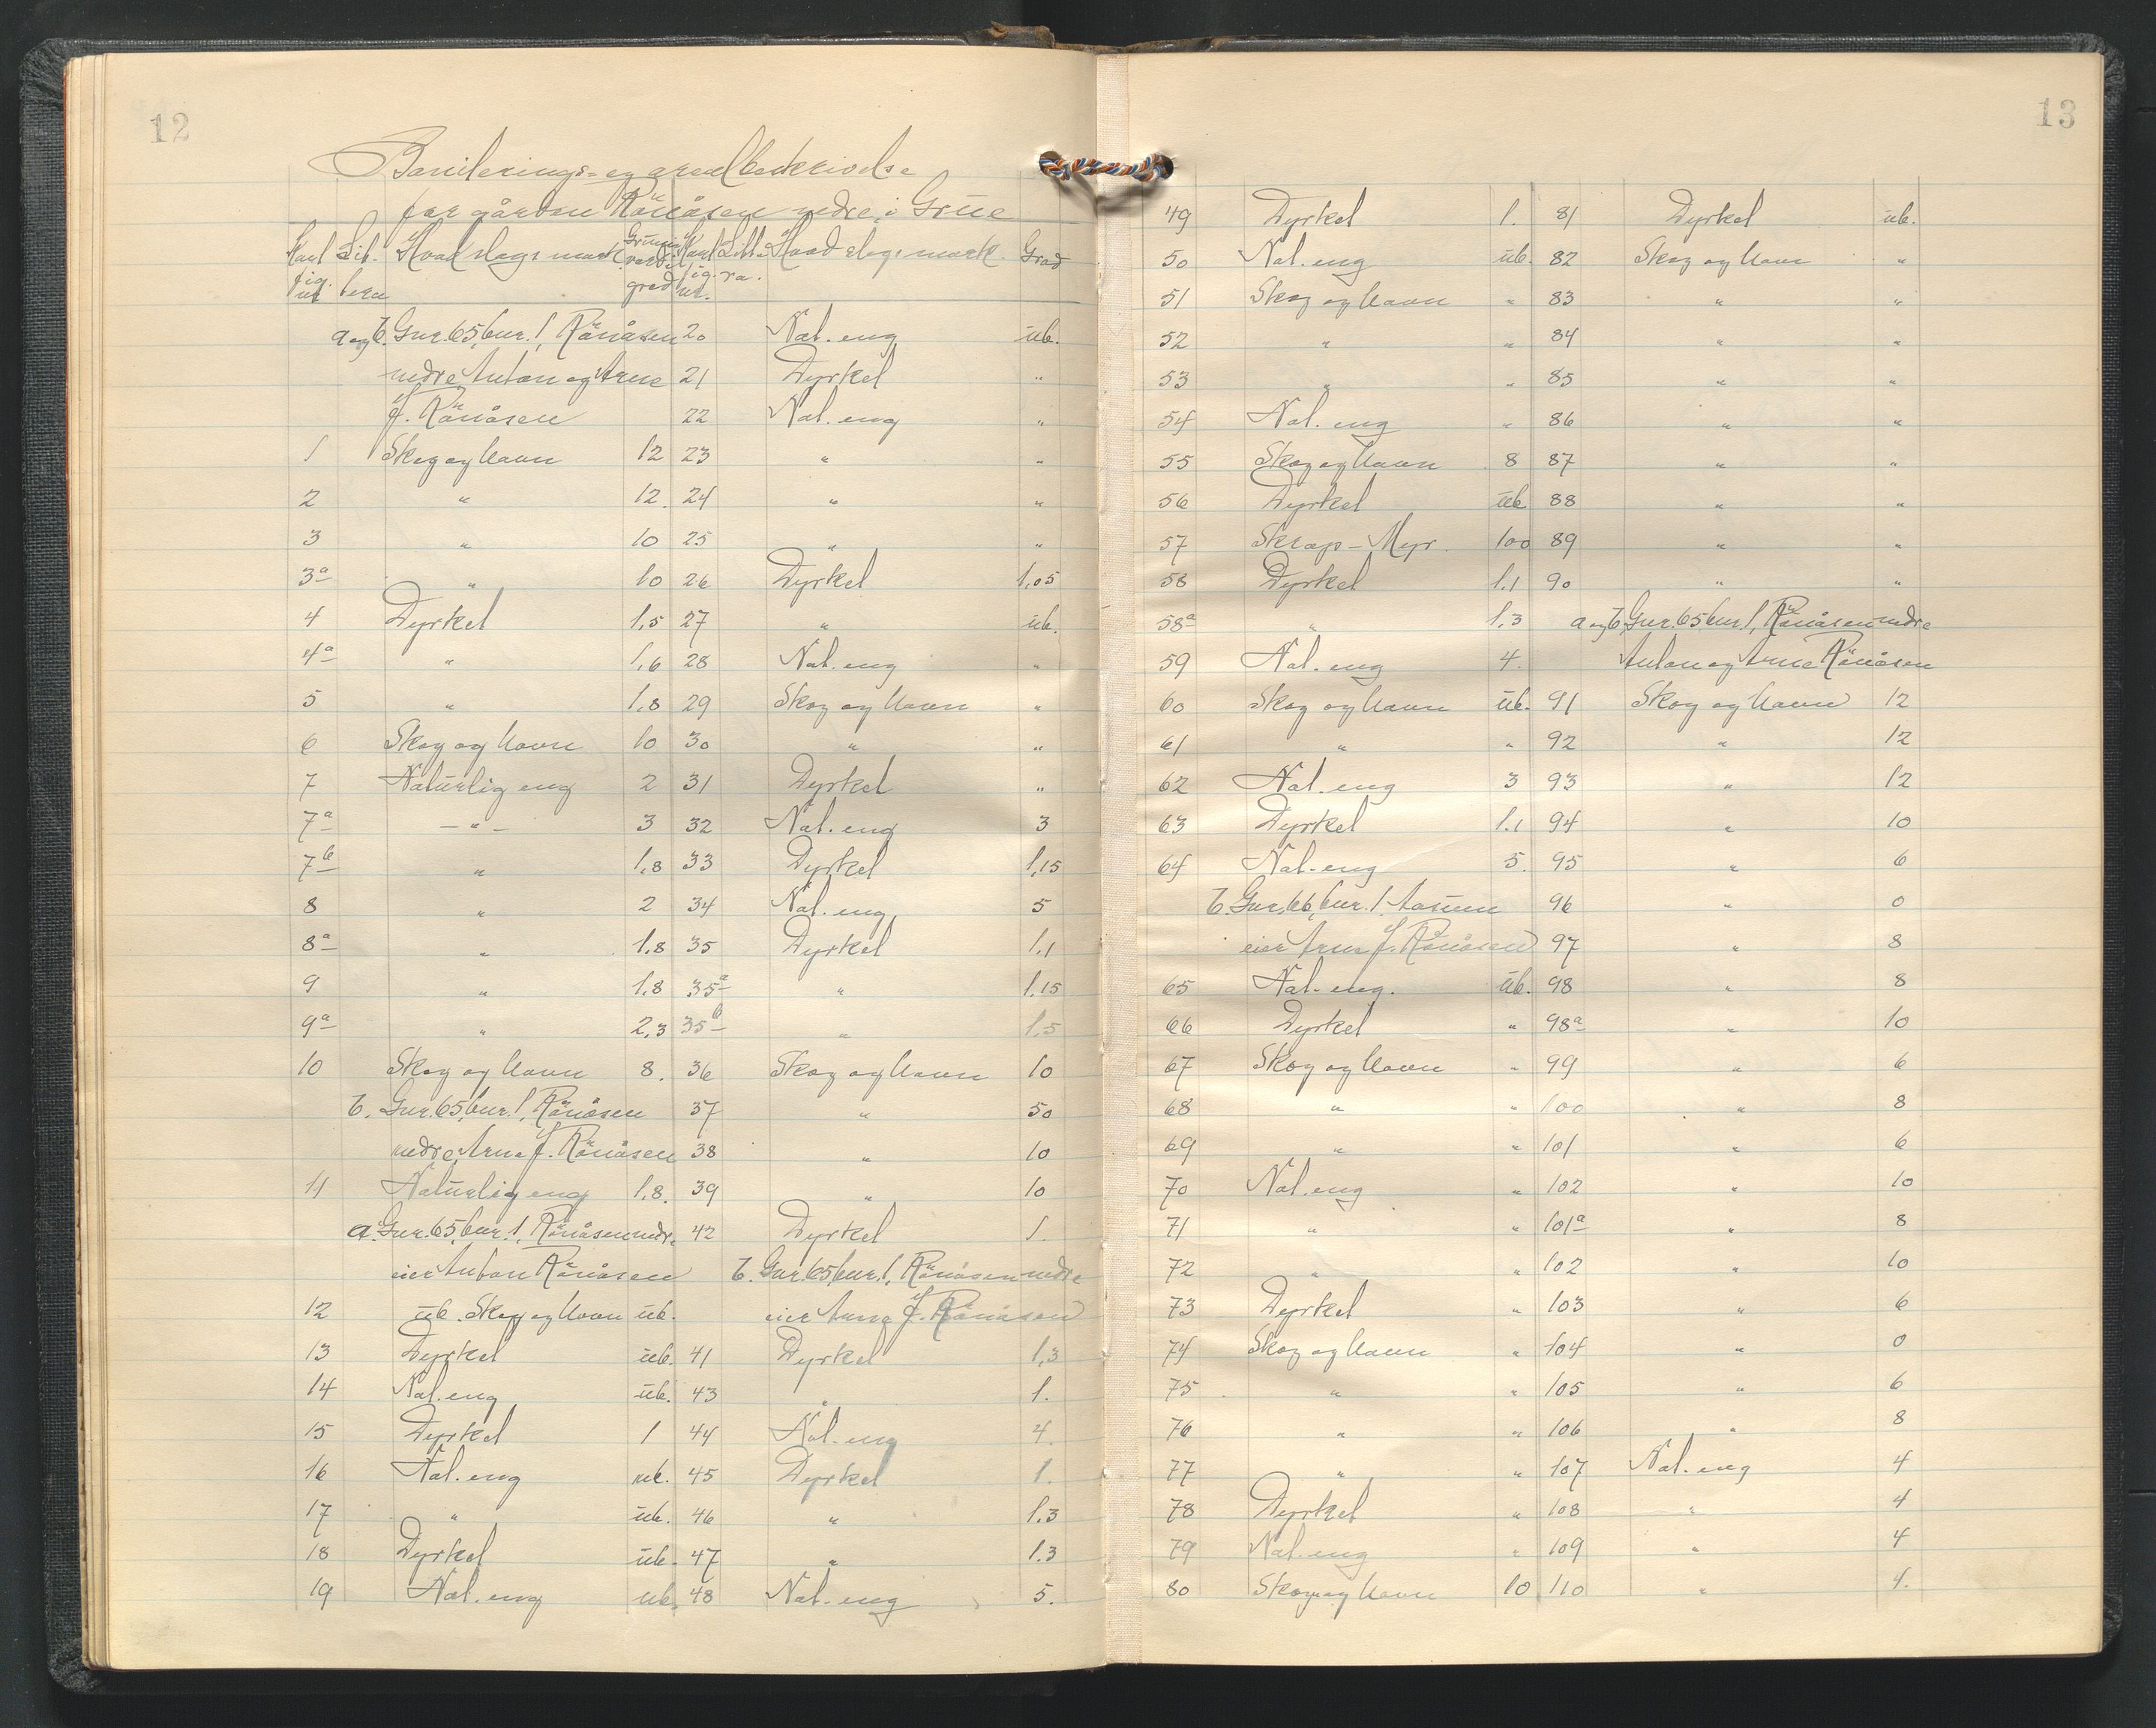 12
Boniterings- og arealbeskrivelse
for gården Rönåsen nedre i Grue
Kart fig. nr. Lit. bern Hvad slags mark Grunnverdi grad Kart fig. nr. Littera. Hvad slags mark. Grad
a og b. Gnr. 65, bnr. 1, Rönåsen 20 Nat. eng üb.
nedre, Anton og Arne 21 Dyrket "
J. Rönåsen 22 Nat. eng "
1 Skog og havn 12 23 " "
2 " 12. 24 " "
3 " 10 25 " "
3a " 10 26 Dyrket 1,05
4 Dyrket 1,5 27 " üb.
4a " 1,6 28 Nat. eng "
5 " 1,8 29 Skog og havn "
6 Skog og havn 10 30 " "
7 Naturlig eng 2 31 Dyrket "
7a — " — 3 32 Nat. eng 3
7b " 1,8 33 Dyrket 1,15
8 " 2 34 Nat. eng 5
8a " 1,8 35 Dyrket 1,1
9 " 1,8 35a " 1,15
9a " 2,3 35b " 1,5
10 Skog og havn 8. 36 Skog og havn 10
b. Gnr. 65, bnr. 1, Rönåsen 37 " 50
nedre, Arne J. Rönåsen 38 " 10
11 Naturlig eng 1,8. 39 " 10
a. Gnr. 65, bnr. 1, Rönåsen nedre 42 Dyrket 1.
eier Anton Rönåsen b. Gnr. 65, bnr. 1, Rönåsen nedre
12 üb. Skog og havn üb. eier Arne J. Rönåsen
13 Dyrket üb. 41 Dyrket 1,3
14 Nat. eng üb. 43 " 1.
15 Dyrket 1 44 Nat. eng 4.
16 Nat. eng üb. 45 Dyrket 1.
17 " üb. 46 " 1.3
18 Dyrket üb. 47 " 1.3
19 Nat. eng üb. 48 Nat. eng 5.
13
49 Dyrket 1. 81 Dyrket üb.
50 Nat. eng üb. 82 Skog og havn "
51 Skog og havn " 83 " "
52 " " 84 " "
53 " " 85 " "
54 Nat. eng " 86 " "
55 Skog og havn 8 87 " "
56 Dyrket üb 88 " "
57 Skrap-Myr. 100 89 " "
58 Dyrket 1.1 90 " "
58a " 1,3 a og b, Gnr. 65, bnr. 1, Rönåsen nedre
59 Nat. eng 4. Anton og Arne Rönåsen
60 Skog og havn üb. 91 Skog og havn 12
61 " " 92 " 12
62 Nat. eng 3 93 " 12
63 Dyrket 1.1 94 " 10
64 Nat. eng 5. 95 " 6
b. Gnr. 66, bnr. 1 96 " 0
eier Arne J. Rönåsen 97 " 8
65 Nat. eng. üb. 98 " 8
66 Dyrket " 98a " 10
67 Skog og havn " 99 " 6
68 " " 100 " 8
69 " " 101 " 6
70 Nat. eng " 102 " 10
71 " " 101a " 8
72 " " 102 " 10
73 Dyrket " 103 " 6
74 Skog og havn " 104 " 0
75 " " 105 " 6
76 " " 106 " 8
77 " " 107 Nat. eng 4
78 Dyrket " 108 " 4
79 Nat. eng " 109 " 4
80 Skog og havn 10 110 " 4.